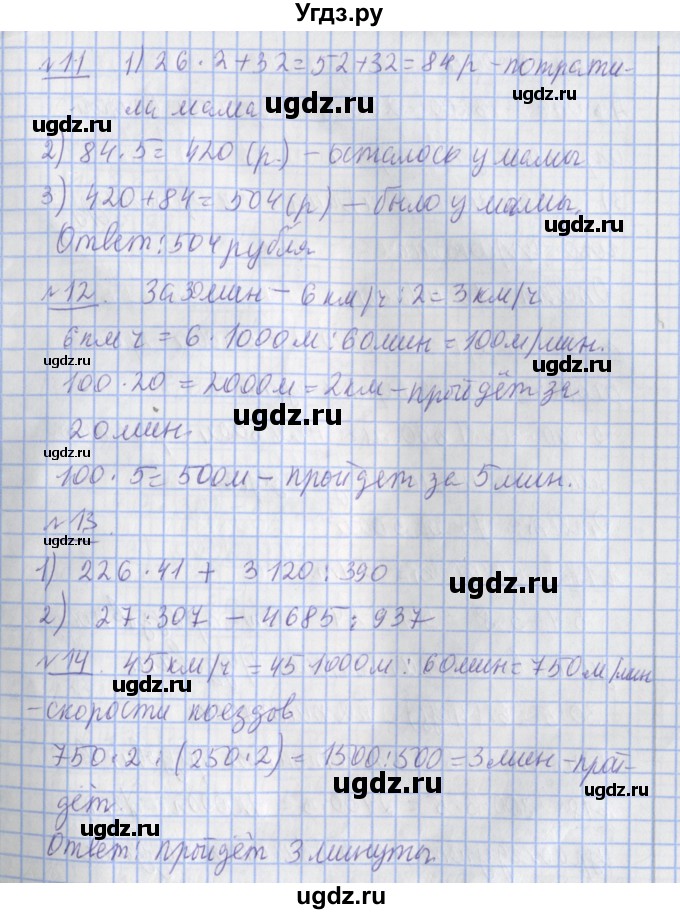 Угдз.ру
№11 1) 26 · 2 + 32 = 52 + 32 = 84 р - потрати-
ла мама
ugdz.ru
ugdz.ru
ugdz.ru
2) 84 · 5 = 420 (р.) - осталось у мамы
3) 420 + 84 = 504 (р) - было у мамы.
ugdz.ru
Ответ: 504 рубля
№12. За 30 мин - 6 км/ч : 2 = 3 км/ч
6 км ч = 6 · 1000 м : 60 мин = 100 м/мин.
ugdz.ru
ugdz.ru
100 · 20 = 2000 м = 2 км - пройдёт за
ugdz.ru
20 мин
ugdz.ru
100 · 5 = 500 м - пройдет за 5 мин.
№13.
ugdz.ru
1) 226 · 41 + 3120 : 390
ugdz.ru
2) 27 · 307 - 4685 : 937
№14. 45 км/ч = 45 1000 м : 60 мин = 750 м/мин
ugdz.ru
ugdz.ru
- скорости поездов
750 · 2 : (250 · 2) = 1500 : 500 = 3 мин - прой-
ugdz.ru
ugdz.ru
дёт.
ugdz.ru
Ответ: пройдёт 3 минуты.
ugdz.ru
ugdz.ru